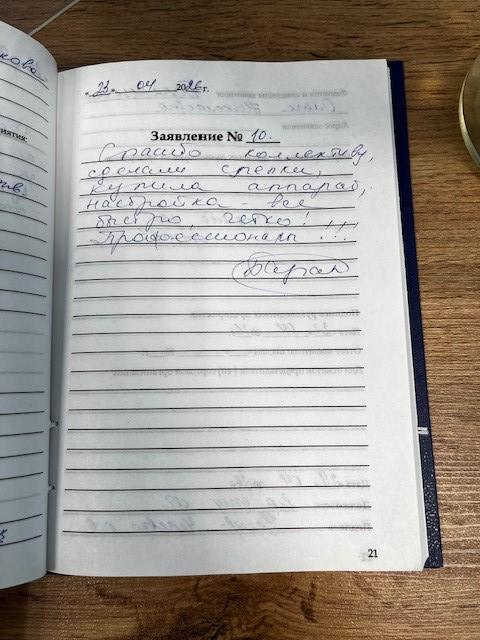 кова
"23" 04 2026 г.
Заявление № 10.
иятия:
Спасибо коллективу,
сделали слепки,
купила аппарат,
настройка - все
быстро, четко!
Профессионалы !!!
21